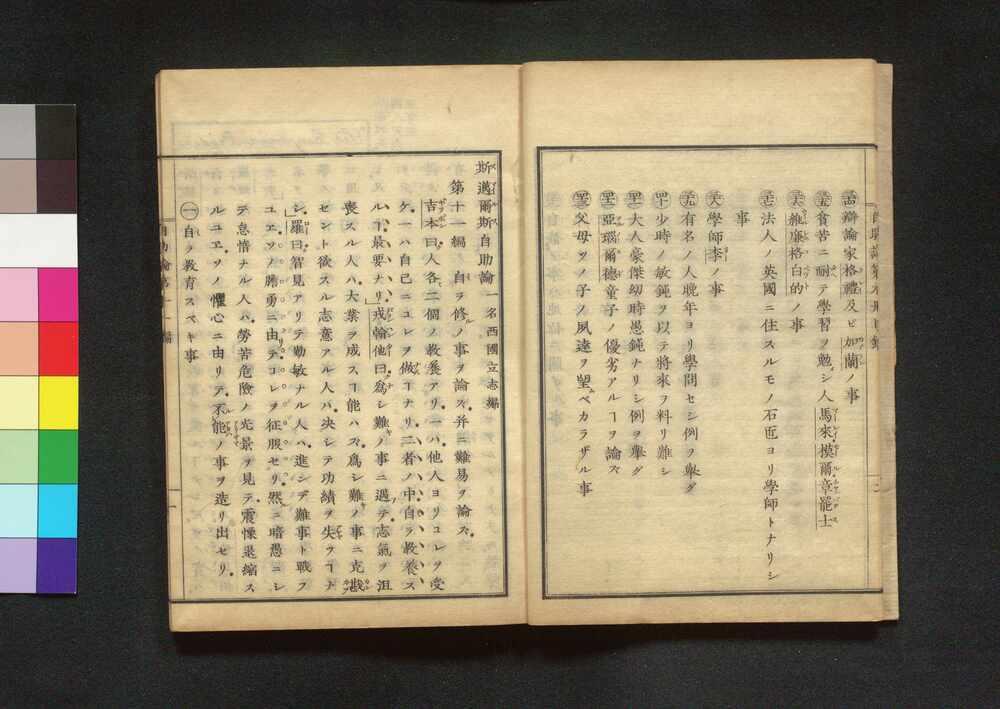 ㉞辯論家格禮及ビ加蘭ノ事
㉟貪苦ニ耐テ學習ヲ勉シ人馬來模爾章罷士
㊱維廉格白的ノ事
㊲法人ノ英國ニ住スルモノ石匠ヨリ學師トナリシ
事
㊳大學師李ノ事
㊴有名ノ人晚年ヨリ學問セシ例ヲ擧グ
㊵少時ノ敏鈍ヲ以テ將來ヲ料リ難シ
㊶大人豪傑幼時愚鈍ナリシ例ヲ擧グ
㊷亞瑙爾德童子ノ優劣アルヿヲ論ス
㊸父母ソノ子ノ夙達ヲ望ベカラザル事
斯邁爾斯自助論 一名西國立志編
第十一編 自ヲ修ノ事ヲ論ス并ニ難易ヲ論ス
吉本曰人各二個ノ敎養アリ一ハ他人ヨリコレヲ受
ケ一ハ自己ニコレヲ做ヿナリ二者ノ中自ラ敎養ス
ルヿ最要ナリ」戎翰他曰爲シ難ノ事ニ遇テ志氣ヲ沮
喪スル人ハ大業ヲ成スヿ能ハズ爲シ難ノ事ニ克戡
セント欲スル志意アル人ハ決シテ功績ヲ失フヿナ
シ」羅曰智見アリテ勤敏ナル人ハ進ンデ難事ト戰フ
ユヱソノ膽勇ニ由テコレヲ征服セリ然ニ暗愚ニシ
テ怠惰ナル人ハ勞苦危險ノ光景ヲ見テ震慄退縮ス
ルユヱソノ懼心ニ由リテ不能ノ事ヲ造リ出セリ
㊀自ヲ敎育スベキ事